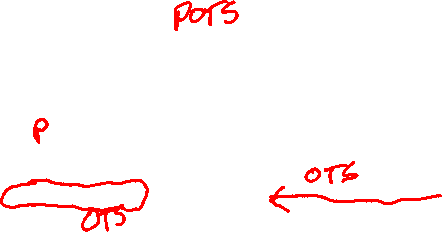 POTS
P
OTS
OTS